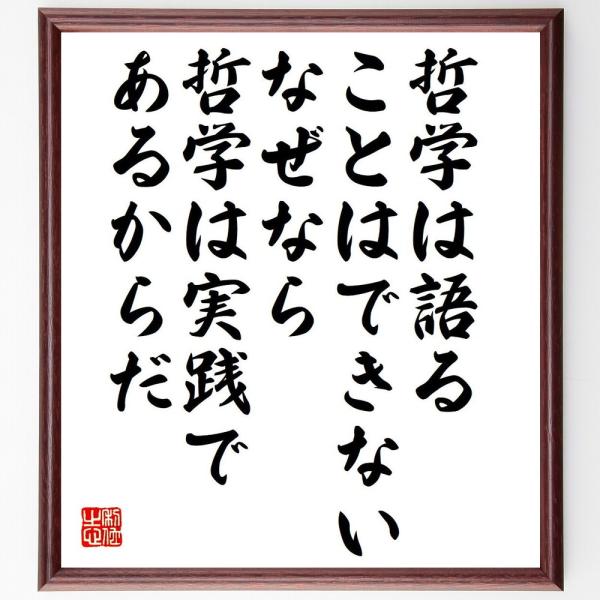 哲学は語る
ことはできない
なぜなら
哲学は実践で
あるからだ